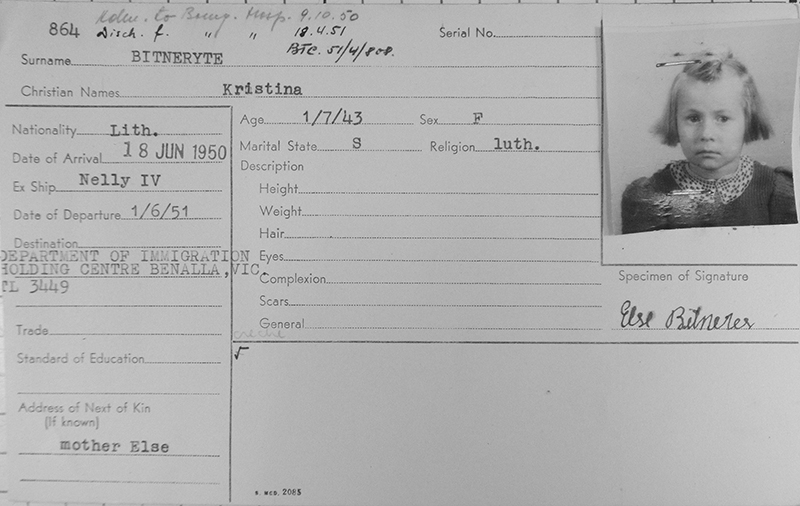 to Bong. Hosp. 9.10.50
864 Disch. f. " " 18.4.51 Serial No.
BTC. 51/4/808.
Surname BITNERYTE
Christian Names Kristina
Nationality Lith.
Date of Arrival 18 JUN 1950
Ex Ship Nelly IV
Date of Departure 1/6/51
Destination
DEPARTMENT OF IMMIGRATION
HOLDING CENTRE BENALLA, VIC.
TL 3449
Trade
Standard of Education
Address of Next of Kin
(If known)
mother Else
Age 1/7/43 Sex F
Marital State S Religion luth.
Description
Height
Weight
Hair
Eyes
Complexion
Scars
General
creche
Specimen of Signature
Else Bitneres
R. MCD. 2085